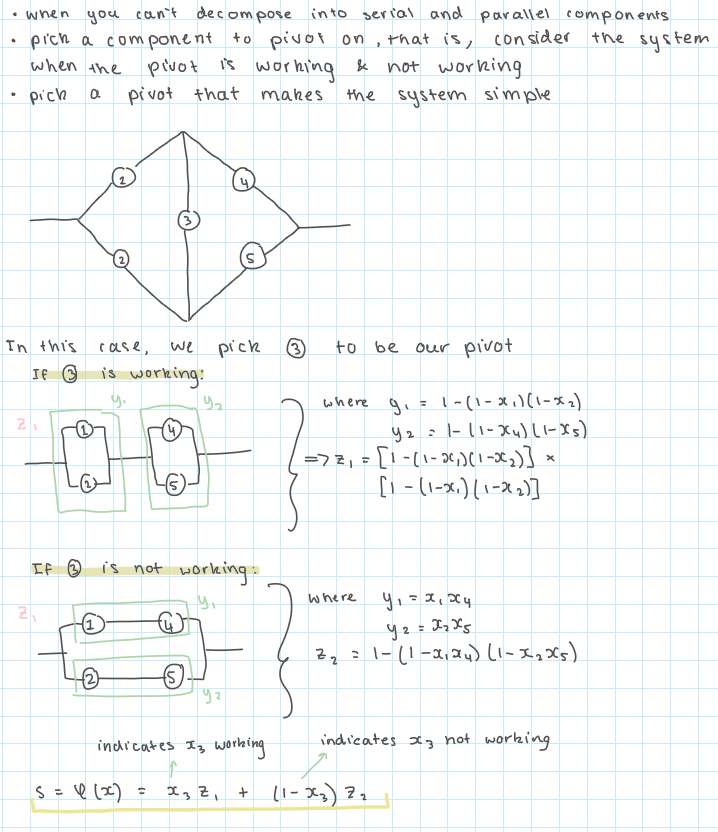 • when you can't decompose into serial and parallel components
• pick a component to pivot on, that is, consider the system
when the pivot is working & not working
• pick a pivot that makes the system simple
2
4
3
2
5
In this case, we pick ③ to be our pivot
If ③ is working:
z₁
y₁
y₂
1
4
2
5
where y₁ = 1-(1-x₁)(1-x₂)
y₂ = 1-(1-x₄)(1-x₅)
=> z₁ = [1-(1-x₁)(1-x₂)] ×
[1-(1-x₁)(1-x₂)]
If ③ is not working:
z₁
y₁
1
4
2
5
y₂
where y₁ = x₁x₄
y₂ = x₂x₅
z₂ = 1-(1-x₁x₄)(1-x₂x₅)
indicates x₃ working
indicates x₃ not working
s = φ(x) = x₃z₁ + (1-x₃)z₂